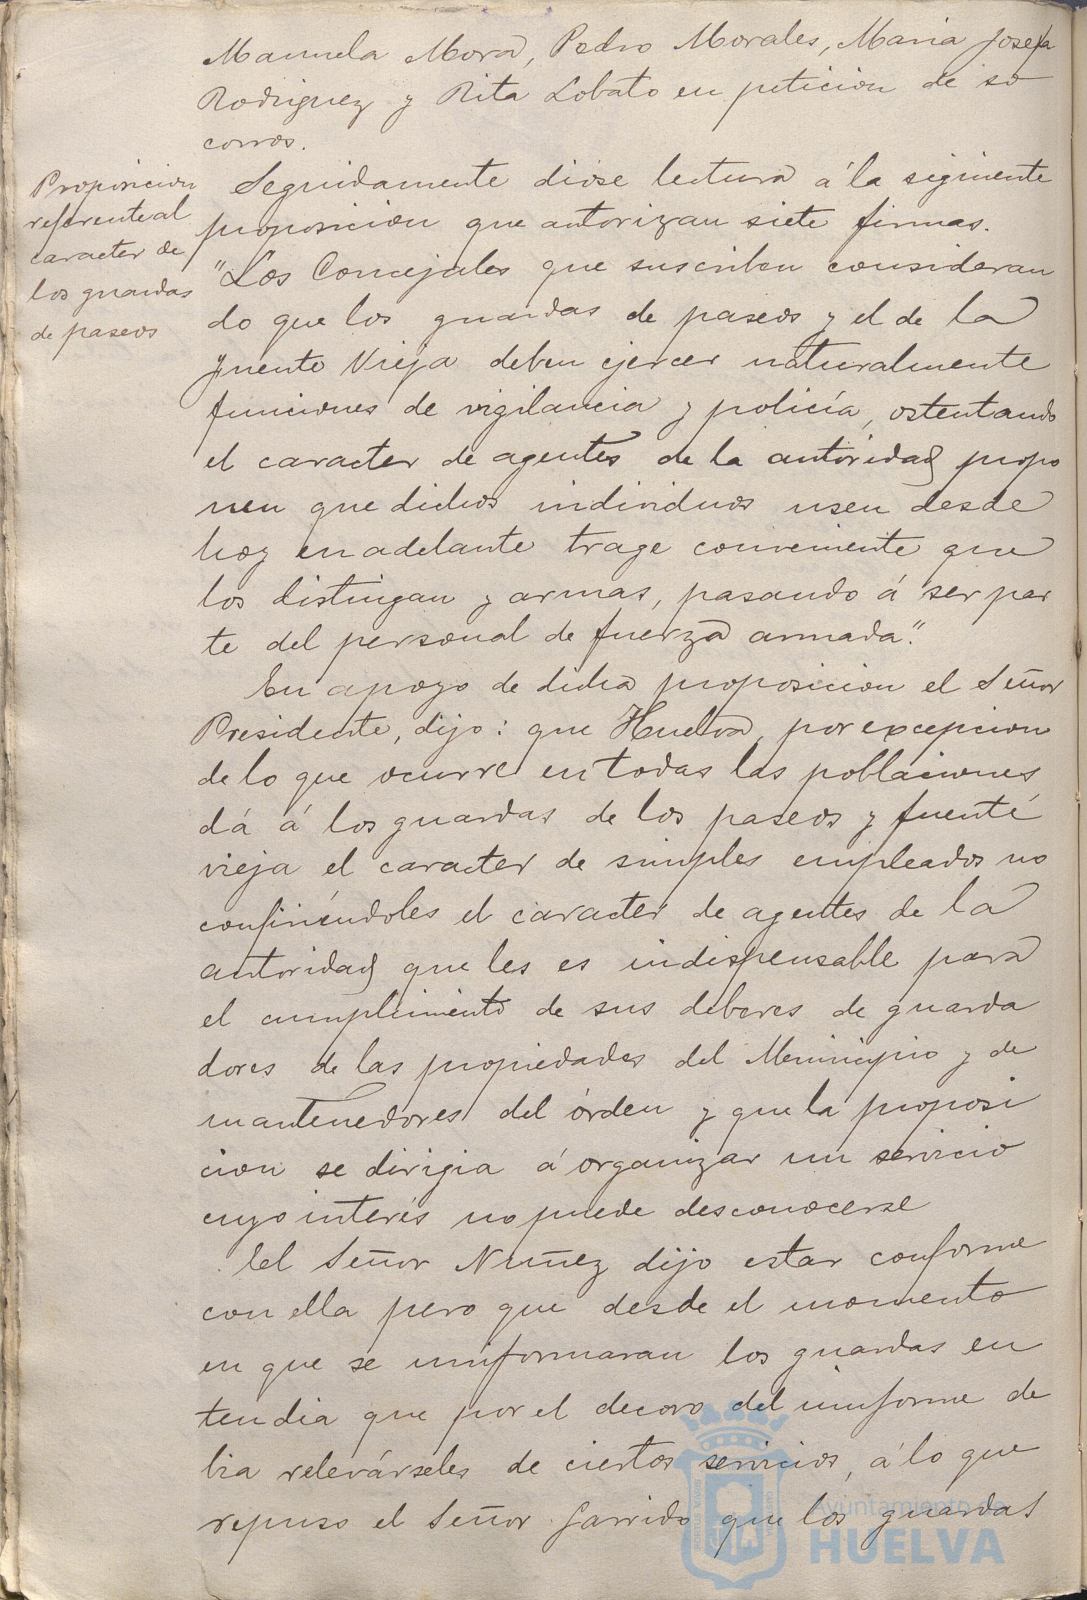 Manuela Mora, Pedro Morales, Maria Josefa
Rodriguez y Rita Lobato en peticion de so
corros.
Proposicion
referente al
caracter de
los guardas
de paseos
Seguidamente dióse lectura á la siguiente
proposicion que autorizan siete firmas.
"Los Concejales que suscriben consideran
do que los guardas de paseos y el de la
fuente Vieja deben ejercer naturalmente
funciones de vigilancia y policía, ostentando
el caracter de agentes de la autoridad propo
nen que dichos individuos usen desde
hoy en adelante trage conveniente que
los distingan y armas, pasando á ser par
te del personal de fuerza armada".
En apoyo de dicha proposicion el Señor
Presidente, dijo: que Huelva, por excepcion
de lo que ocurre en todas las poblaciones,
dá á los guardas de los paseos y fuente
vieja el caracter de simples empleados no
confiriéndoles el caracter de agentes de la
autoridad que les es indispensable para
el cumplimiento de sus deberes de guarda
dores de las propiedades del Municipio y de
mantenedores del órden y que la proposi
cion se dirigia á organizar un servicio
cuyo interés no puede desconocerse
El Señor Nuñez dijo estar conforme
con ella pero que desde el momento
en que se uniformaran los guardas en
tendia que por el decoro del uniforme de
bia relevárseles de ciertos servicios, á lo que
repuso el Señor Garrido que los guardas
Ayuntamiento de
HUELVA